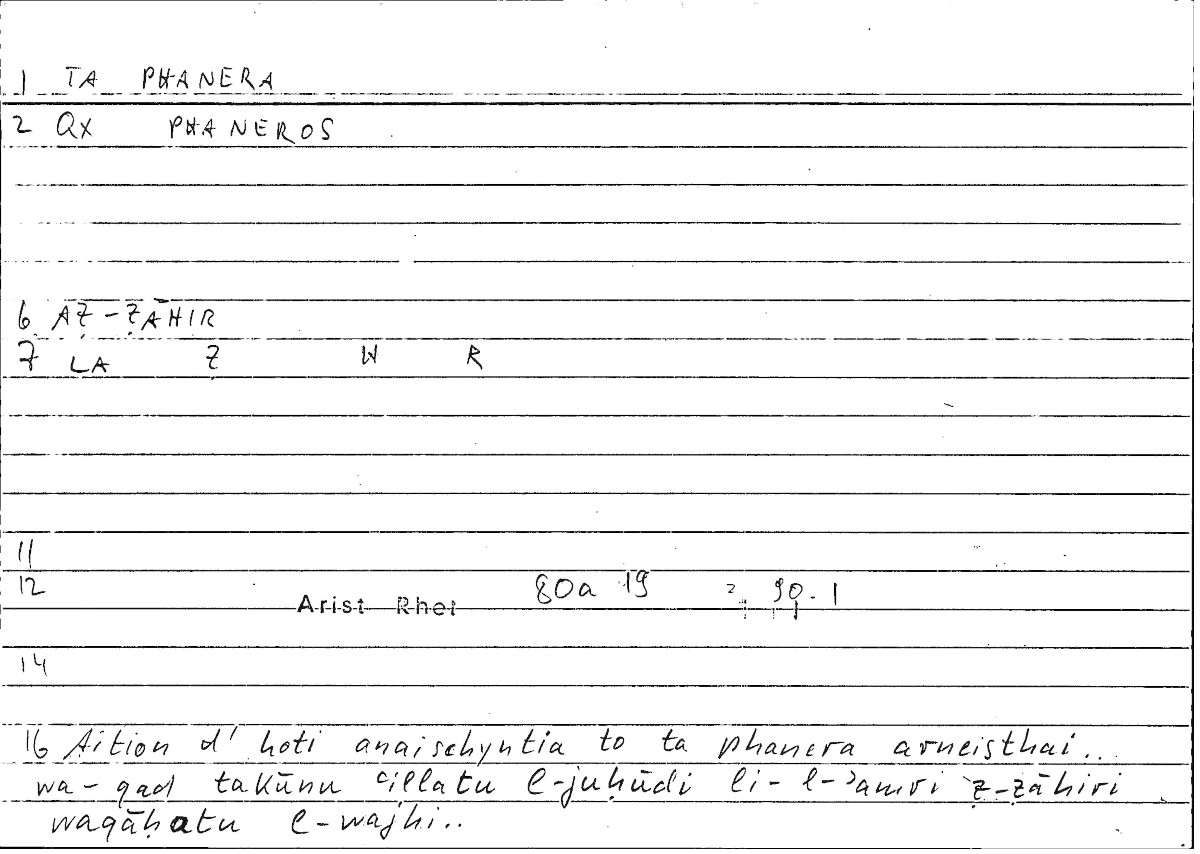 1 TA PHANERA
2 Qx PHANEROS
6 AẒ-ẒĀHIR
7 LA Ẓ W R
11
12 Arist Rhet 80a 19 90.1
14
16 Aition d' hoti anaischyntia to ta phanera arneisthai...
wa-qad takūnu ʿillatu l-juḥūdi li-l-ʾamri ẓ-ẓāhiri
waqāḥatu l-wajhi..